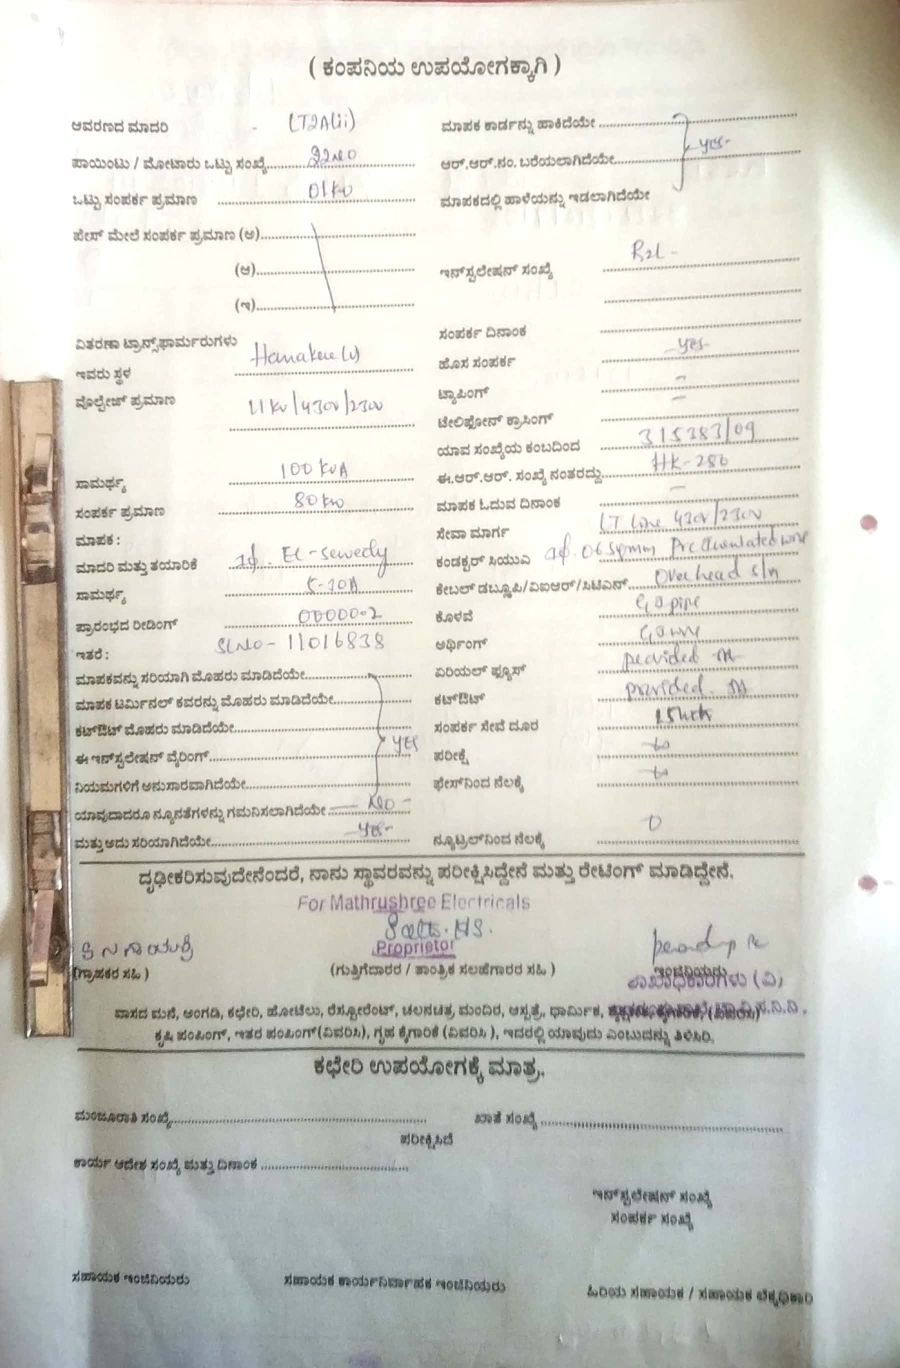 ( ಕಂಪನಿಯ ಉಪಯೋಗಕ್ಕಾಗಿ )
ಆವರಣದ ಮಾದರಿ - LT2A(ii)
ಪಾಯಿಂಟು / ಮೋಟಾರು ಒಟ್ಟು ಸಂಖ್ಯೆ
ಒಟ್ಟು ಸಂಪರ್ಕ ಪ್ರಮಾಣ 01KW
ಫೇಸ್ ಮೇಲೆ ಸಂಪರ್ಕ ಪ್ರಮಾಣ (ಅ)
(ಆ)
(ಇ)
ವಿತರಣಾ ಟ್ರಾನ್ಸ್‌ಫಾರ್ಮರುಗಳು
ಇವರು ಸ್ಥಳ Hanakere (v)
ವೊಲ್ಟೇಜ್ ಪ್ರಮಾಣ 11KV/430V/230V
ಸಾಮರ್ಥ್ಯ 100 KVA
ಸಂಪರ್ಕ ಪ್ರಮಾಣ 80KW
ಮಾಪಕ :
ಮಾದರಿ ಮತ್ತು ತಯಾರಿಕೆ 1ϕ. EL-sewedy
ಸಾಮರ್ಥ್ಯ 5-30A
ಪ್ರಾರಂಭದ ರೀಡಿಂಗ್ 00000.2
ಇತರೆ : SLNO - 11016838
ಮಾಪಕವನ್ನು ಸರಿಯಾಗಿ ಮೊಹರು ಮಾಡಿದೆಯೇ
ಮಾಪಕ ಟರ್ಮಿನಲ್ ಕವರನ್ನು ಮೊಹರು ಮಾಡಿದೆಯೇ
ಕಟ್‌ಔಟ್ ಮೊಹರು ಮಾಡಿದೆಯೇ
ಈ ಇನ್‌ಸ್ಟಲೇಷನ್ ವೈರಿಂಗ್ YES
ನಿಯಮಗಳಿಗೆ ಅನುಸಾರವಾಗಿದೆಯೇ
ಯಾವುದಾದರೂ ನ್ಯೂನತೆಗಳನ್ನು ಗಮನಿಸಲಾಗಿದೆಯೇ - NO -
ಮತ್ತು ಅದು ಸರಿಯಾಗಿದೆಯೇ - Yes -
ಮಾಪಕ ಕಾರ್ಡನ್ನು ಹಾಕಿದೆಯೇ
ಆರ್.ಆರ್.ನಂ. ಬರೆಯಲಾಗಿದೆಯೇ - Yes -
ಮಾಪಕದಲ್ಲಿ ಹಾಳೆಯನ್ನು ಇಡಲಾಗಿದೆಯೇ
ಇನ್‌ಸ್ಟಲೇಷನ್ ಸಂಖ್ಯೆ
ಸಂಪರ್ಕ ದಿನಾಂಕ
ಹೊಸ ಸಂಪರ್ಕ - Yes -
ಟ್ಯಾಪಿಂಗ್ -
ಟೇಲಿಫೋನ್ ಕ್ರಾಸಿಂಗ್ -
ಯಾವ ಸಂಖ್ಯೆಯ ಕಂಬದಿಂದ 315383/09
ಈ.ಆರ್.ಆರ್. ಸಂಖ್ಯೆ ನಂತರದ್ದು HK-286
ಮಾಪಕ ಓದುವ ದಿನಾಂಕ -
ಸೇವಾ ಮಾರ್ಗ LT Line 430V/230V
ಕಂಡಕ್ಟರ್ ಸಿಯುಎ 1ϕ. 06 Sqmm
ಕೇಬಲ್ ಡಬ್ಲ್ಯೂಪಿ/ಎಐಆರ್/ಸಿಟಿಎಸ್ Overhead S/M
ಕೊಳವೆ GI pipe
ಅರ್ಥಿಂಗ್ GI wire
ಏರಿಯಲ್ ಫ್ಯೂಸ್ provided
ಕಟ್‌ಔಟ್ provided
ಸಂಪರ್ಕ ಸೇವೆ ದೂರ
ಪರೀಕ್ಷೆ
ಫೇಸ್‌ನಿಂದ ನೆಲಕ್ಕೆ
ನ್ಯೂಟ್ರಲ್‌ನಿಂದ ನೆಲಕ್ಕೆ 0
ದೃಢೀಕರಿಸುವುದೇನೆಂದರೆ, ನಾನು ಸ್ಥಾವರವನ್ನು ಪರೀಕ್ಷಿಸಿದ್ದೇನೆ ಮತ್ತು ರೇಟಿಂಗ್ ಮಾಡಿದ್ದೇನೆ.
For Mathrushree Electricals
Proprietor
(ಗ್ರಾಹಕರ ಸಹಿ ) (ಗುತ್ತಿಗೆದಾರರ / ತಾಂತ್ರಿಕ ಸಲಹೆಗಾರರ ಸಹಿ ) ಇಂಜಿನಿಯರು
ಶಾಖಾಧಿಕಾರಿಗಳು (ವಿ)
ವಾಸದ ಮನೆ, ಅಂಗಡಿ, ಕಛೇರಿ, ಹೋಟೆಲು, ರೆಸ್ಟೋರೆಂಟ್, ಚಲನಚಿತ್ರ ಮಂದಿರ, ಆಸ್ಪತ್ರೆ, ಧಾರ್ಮಿಕ, ಕೈಗಾರಿಕೆ, (ವಿವರಿಸಿ)
ಕೃಷಿ ಪಂಪಿಂಗ್, ಇತರ ಪಂಪಿಂಗ್ (ವಿವರಿಸಿ), ಗೃಹ ಕೈಗಾರಿಕೆ (ವಿವರಿಸಿ ), ಇದರಲ್ಲಿ ಯಾವುದು ಎಂಬುದನ್ನು ತಿಳಿಸಿರಿ.
ಕಛೇರಿ ಉಪಯೋಗಕ್ಕೆ ಮಾತ್ರ.
ಮಂಜೂರಾತಿ ಸಂಖ್ಯೆ ಖಾತೆ ಸಂಖ್ಯೆ
ಪರೀಕ್ಷಿಸಿದೆ
ಕಾರ್ಯ ಆದೇಶ ಸಂಖ್ಯೆ ಮತ್ತು ದಿನಾಂಕ
ಇನ್‌ಸ್ಟಲೇಷನ್ ಸಂಖ್ಯೆ
ಸಂಪರ್ಕ ಸಂಖ್ಯೆ
ಸಹಾಯಕ ಇಂಜಿನಿಯರು ಸಹಾಯಕ ಕಾರ್ಯನಿರ್ವಾಹಕ ಇಂಜಿನಿಯರು ಹಿರಿಯ ಸಹಾಯಕ / ಸಹಾಯಕ ಲೆಕ್ಕಾಧಿಕಾರಿ